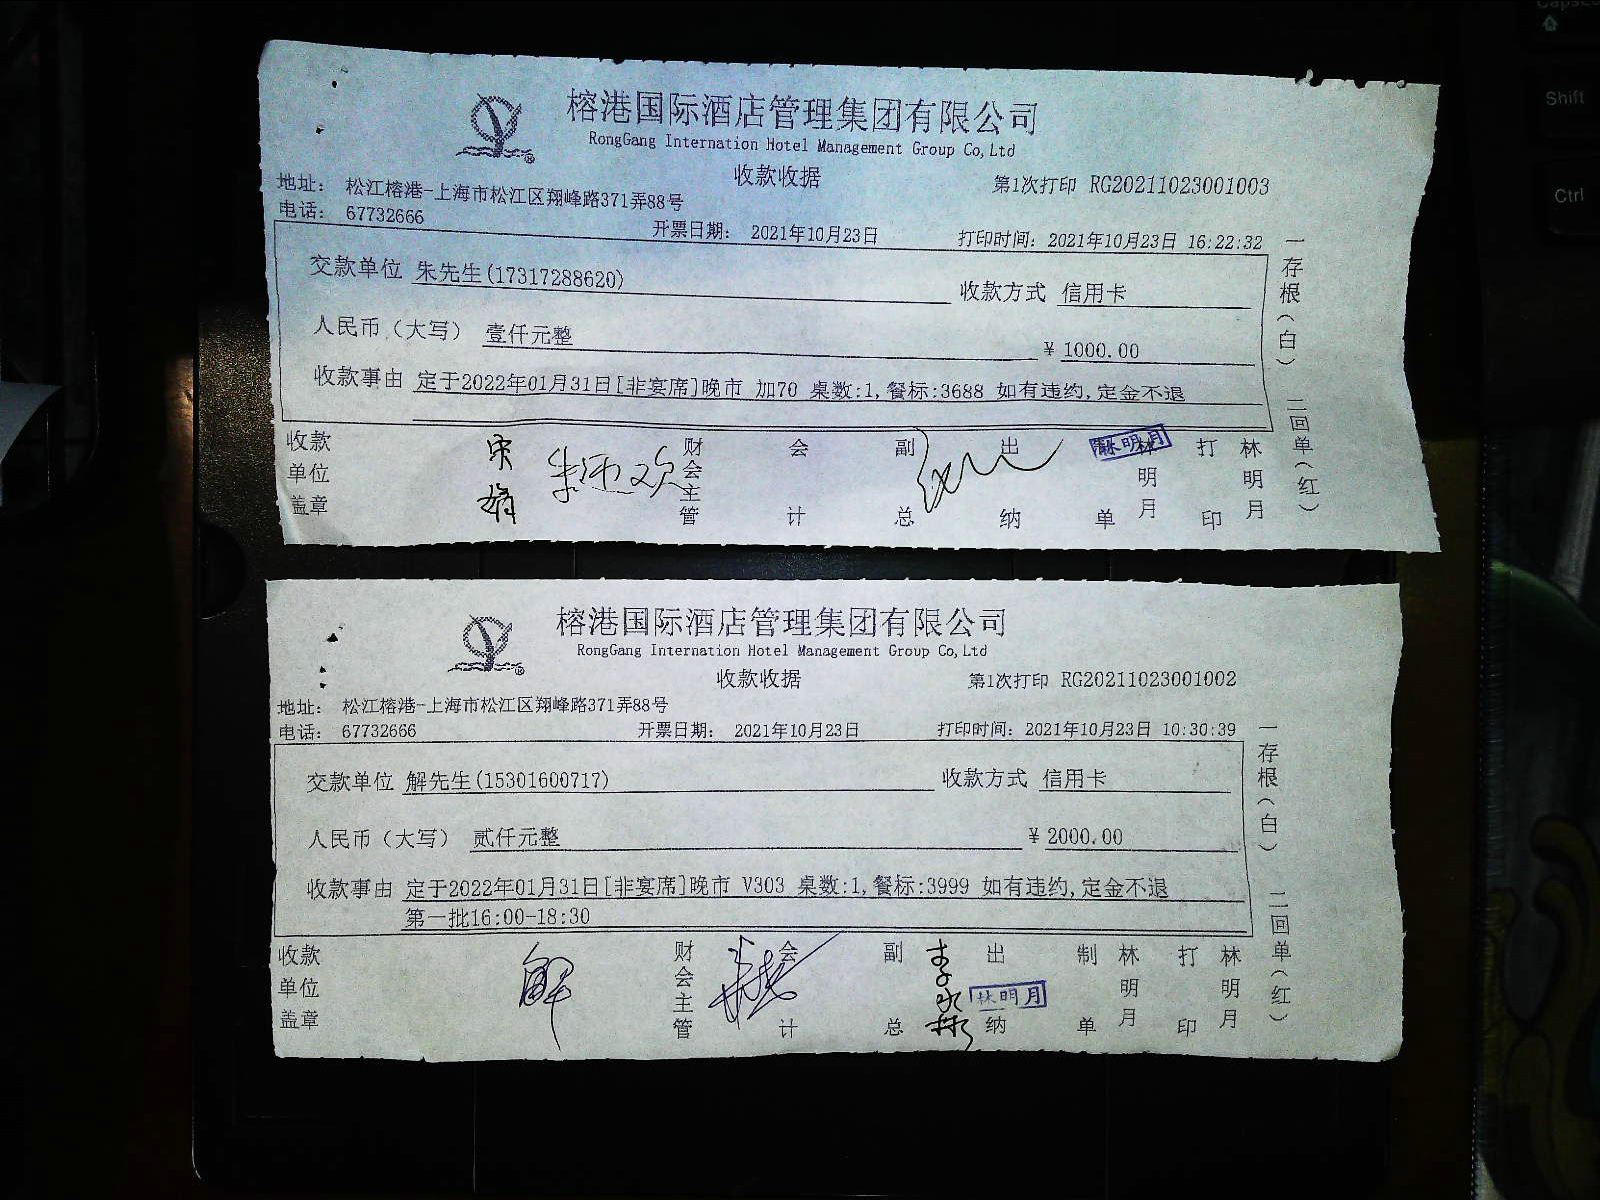 榕港国际酒店管理集团有限公司
RongGang Internation Hotel Management Group Co,Ltd
收款收据 第1次打印 RG20211023001003
地址： 松江榕港-上海市松江区翔峰路371弄88号
电话： 67732666 开票日期： 2021年10月23日 打印时间：2021年10月23日 16:22:32
交款单位 朱先生(17317288620) 收款方式 信用卡
人民币（大写） 壹仟元整 ￥1000.00
收款事由 定于2022年01月31日[非宴席]晚市 加70 桌数:1,餐标:3688 如有违约,定金不退
一存根（白） 二回单（红）
收款单位盖章 财会主管 会计 副总 出纳 制单 林明月 打印 林明月
林明月
榕港国际酒店管理集团有限公司
RongGang Internation Hotel Management Group Co,Ltd
收款收据 第1次打印 RG20211023001002
地址： 松江榕港-上海市松江区翔峰路371弄88号
电话： 67732666 开票日期： 2021年10月23日 打印时间：2021年10月23日 10:30:39
交款单位 解先生(15301600717) 收款方式 信用卡
人民币（大写） 贰仟元整 ￥2000.00
收款事由 定于2022年01月31日[非宴席]晚市 V303 桌数:1,餐标:3999 如有违约,定金不退
第一批16:00-18:30
一存根（白） 二回单（红）
收款单位盖章 解 财会主管 会计 副总 出纳 制单 林明月 打印 林明月
林明月
Shift
Ctrl